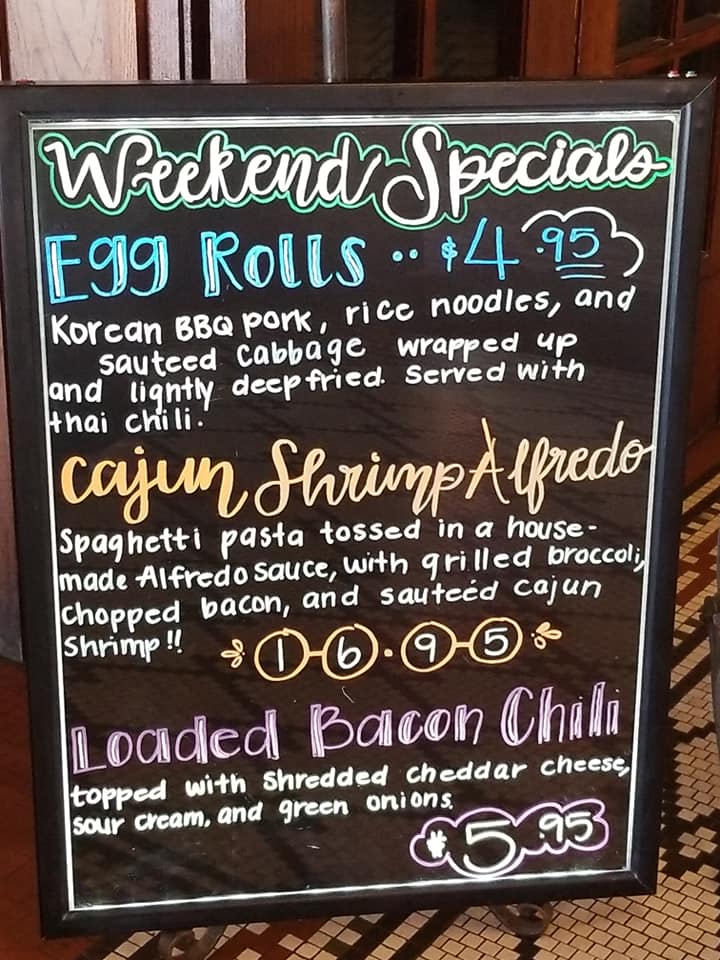 Weekend Specials
Egg Rolls .. $4.95
Korean BBQ pork, rice noodles, and
sauteed cabbage wrapped up
and lightly deep fried. Served with
thai chili.
Cajun Shrimp Alfredo
Spaghetti pasta tossed in a house-
made Alfredo sauce, with grilled broccoli,
chopped bacon, and sauteéd cajun
shrimp!!
16.95
Loaded Bacon Chili
topped with shredded cheddar cheese,
sour cream, and green onions.
$5.95